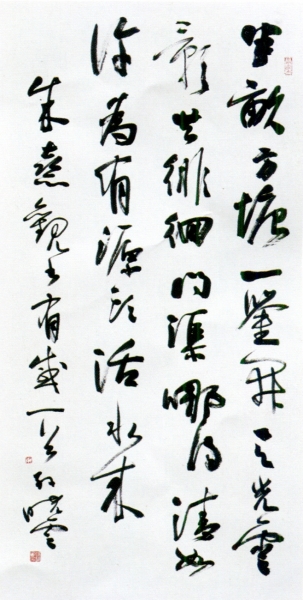 半畝方塘一鑒開天光雲
影共徘徊問渠哪得清如
許為有源頭活水來
朱熹觀書有感一首孫曉雲